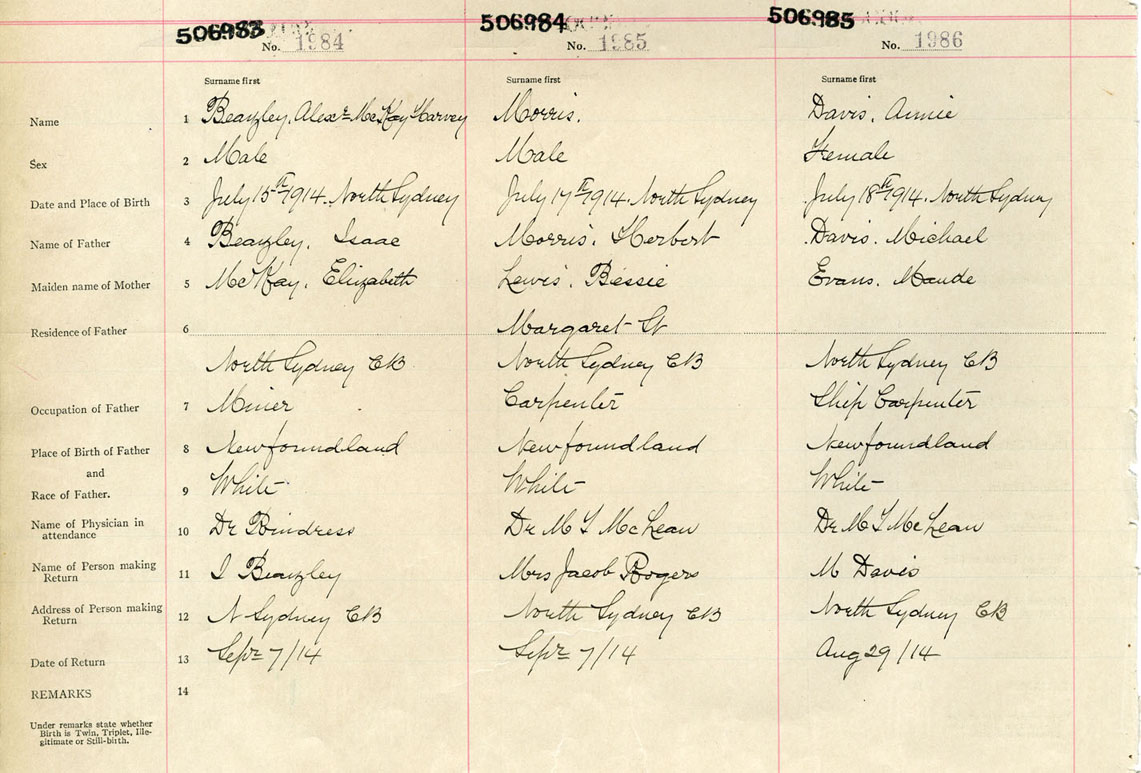 506983 506984 506985
No. 1984 No. 1985 No. 1986
Surname first Surname first Surname first
Name 1 Beazley, Alexr McKay Harvey Morris. Davis. Annie
Sex 2 Male Male Female
Date and Place of Birth 3 July 15th 1914. North Sydney July 17th 1914. North Sydney July 18th 1914. North Sydney
Name of Father 4 Beazley. Isaac Morris. Herbert Davis. Michael
Maiden name of Mother 5 McKay. Elizabeth Lewis. Bessie Evans. Maude
Residence of Father 6 Margaret St
North Sydney CB North Sydney CB North Sydney CB
Occupation of Father 7 Miner Carpenter Ship Carpenter
Place of Birth of Father 8 Newfoundland Newfoundland Newfoundland
and
Race of Father. 9 White White White
Name of Physician in
attendance 10 Dr Dr McLean Dr McLean
Name of Person making
Return 11 I Beazley Mrs Jacob Rogers M Davis
Address of Person making
Return 12 N Sydney CB North Sydney CB North Sydney CB
Date of Return 13 Sept 7/14 Sept 7/14 Aug 29/14
REMARKS 14
Under remarks state whether
Birth is Twin, Triplet, Ille-
gitimate or Still-birth.